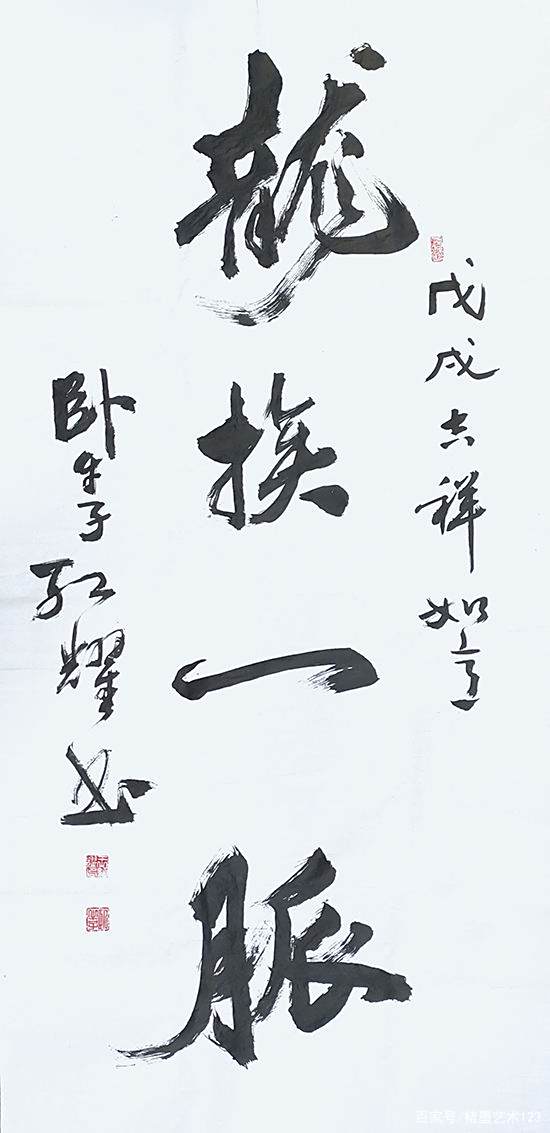 戊戌吉祥如意
龍族一脈
卧牛子红耀书
百家号/精墨艺术123